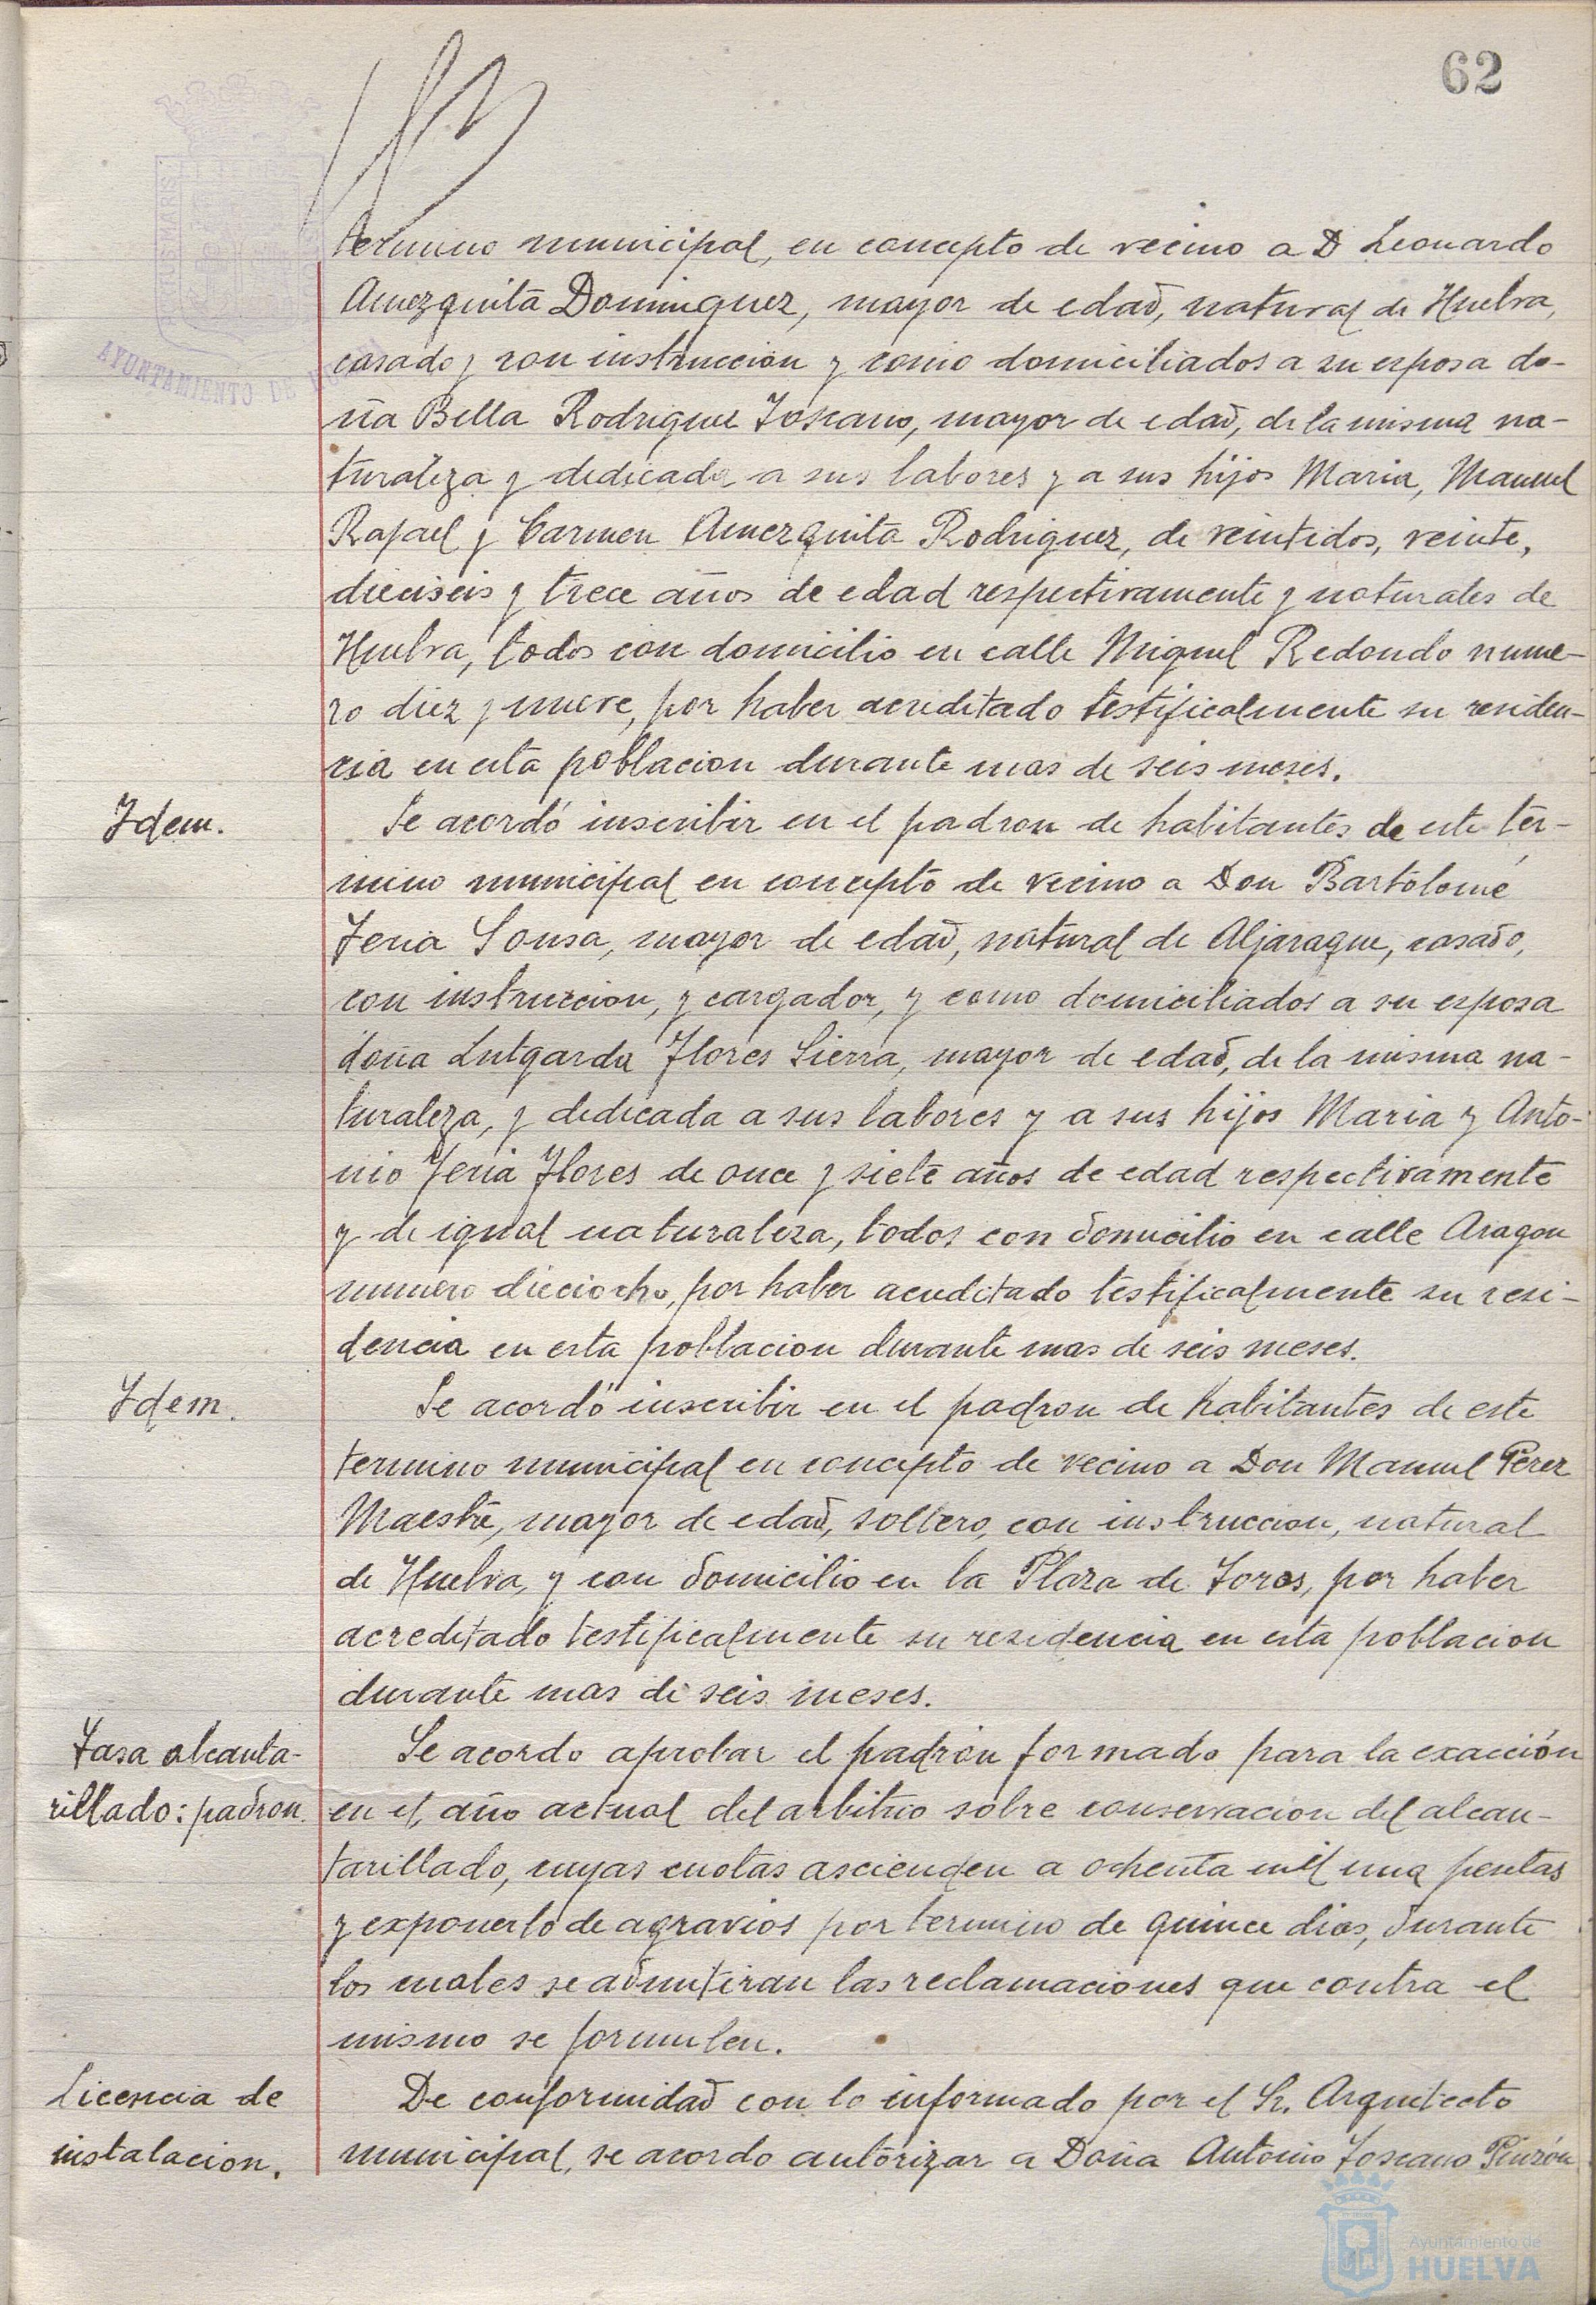 62
AYUNTAMIENTO DE
termino municipal, en concepto de vecino a D Leonardo
Amezquita Dominguez, mayor de edad, natural de Huelva,
casado, con instruccion y como domiciliados a su esposa do-
ña Bella Rodriguez Toscano, mayor de edad, de la misma na-
turaleza y dedicada a sus labores y a sus hijos Maria, Manuel
Rafael y Carmen Amezquita Rodriguez, de veintidos, veinte,
dieciseis y trece años de edad respectivamente y naturales de
Huelva, todos con domicilio en calle Miguel Redondo nume-
ro diez y nueve, por haber acreditado testificalmente su residen-
cia en esta poblacion durante mas de seis meses.
Idem.
Se acordó inscribir en el padron de habitantes de este tér-
mino municipal en concepto de vecino a Don Bartolomé
Feria Sousa, mayor de edad, natural de Aljaraque, casado,
con instruccion, y cargador, y como domiciliados a su esposa
doña Lutgarda Flores Sierra, mayor de edad, de la misma na-
turaleza, y dedicada a sus labores y a sus hijos Maria y Anto-
nio Feria Flores de once y siete años de edad respectivamente
y de igual naturaleza, todos con domicilio en calle Aragon
numero dieciocho, por haber acreditado testificalmente su resi-
dencia en esta poblacion durante mas de seis meses.
Idem.
Se acordó inscribir en el padron de habitantes de este
termino municipal en concepto de vecino a Don Manuel Perez
Maestre, mayor de edad, soltero, con instruccion, natural
de Huelva y con domicilio en la Plaza de Toros, por haber
acreditado testificalmente su residencia en esta poblacion
durante mas de seis meses.
Tasa alcanta-
rillado: padron.
Se acordo aprobar el padrón formado para la exacción
en el año actual del arbitrio sobre conservacion del alcan-
tarillado, cuyas cuotas ascienden a ochenta mil una pesetas
y exponerlo de agravios por termino de quince dias, durante
los cuales se admitiran las reclamaciones que contra el
mismo se formulen.
Licencia de
instalacion.
De conformidad con lo informado por el Sr. Arquitecto
municipal, se acordo autorizar a Doña Antonio Toscano Pinzón
Ayuntamiento de
HUELVA